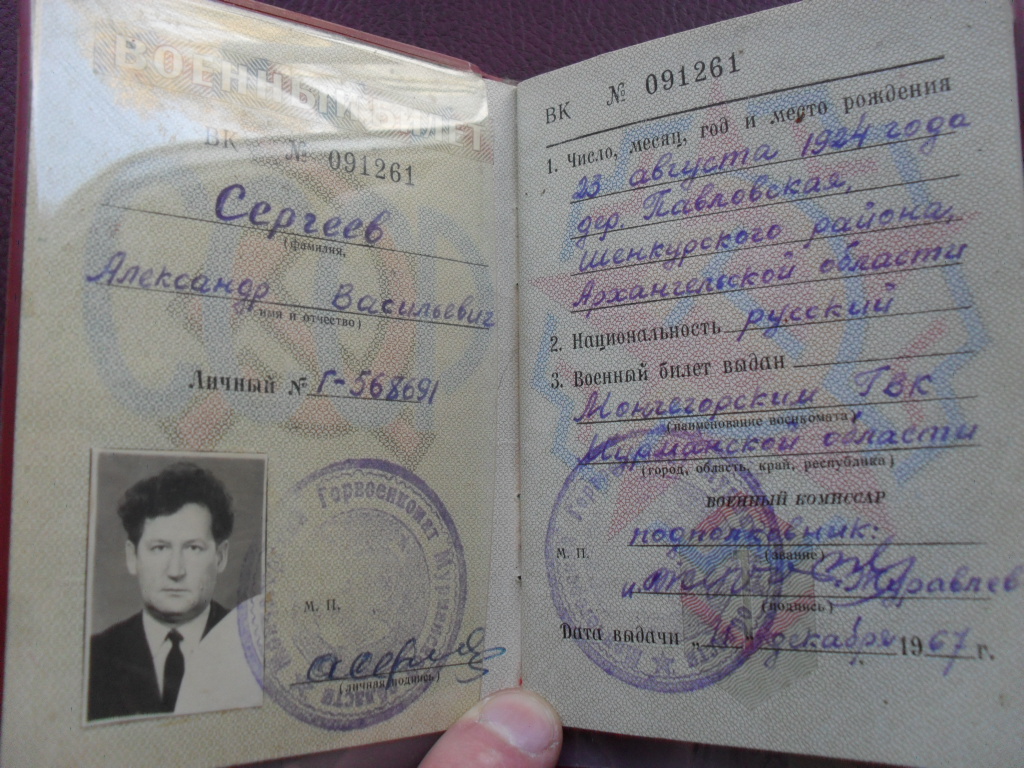 ВОЕННЫЙ БИЛЕТ
ВК № 091261
Сергеев
(фамилия,
Александр Васильевич
имя и отчество)
Личный № Г-568691
М. П.
(личная подпись)
Горвоенкомат Мурманской области
ВК № 091261
1. Число, месяц, год и место рождения
23 августа 1924 года
дер. Павловская,
Шенкурского района,
Архангельской области
2. Национальность русский
3. Военный билет выдан
Мончегорским ГВК
(наименование военкомата)
Мурманской области
(город, область, край, республика)
ВОЕННЫЙ КОМИССАР
подполковник:
М. П.
(звание)
Журавлев
(подпись)
Дата выдачи „ " декабря 1967 г.